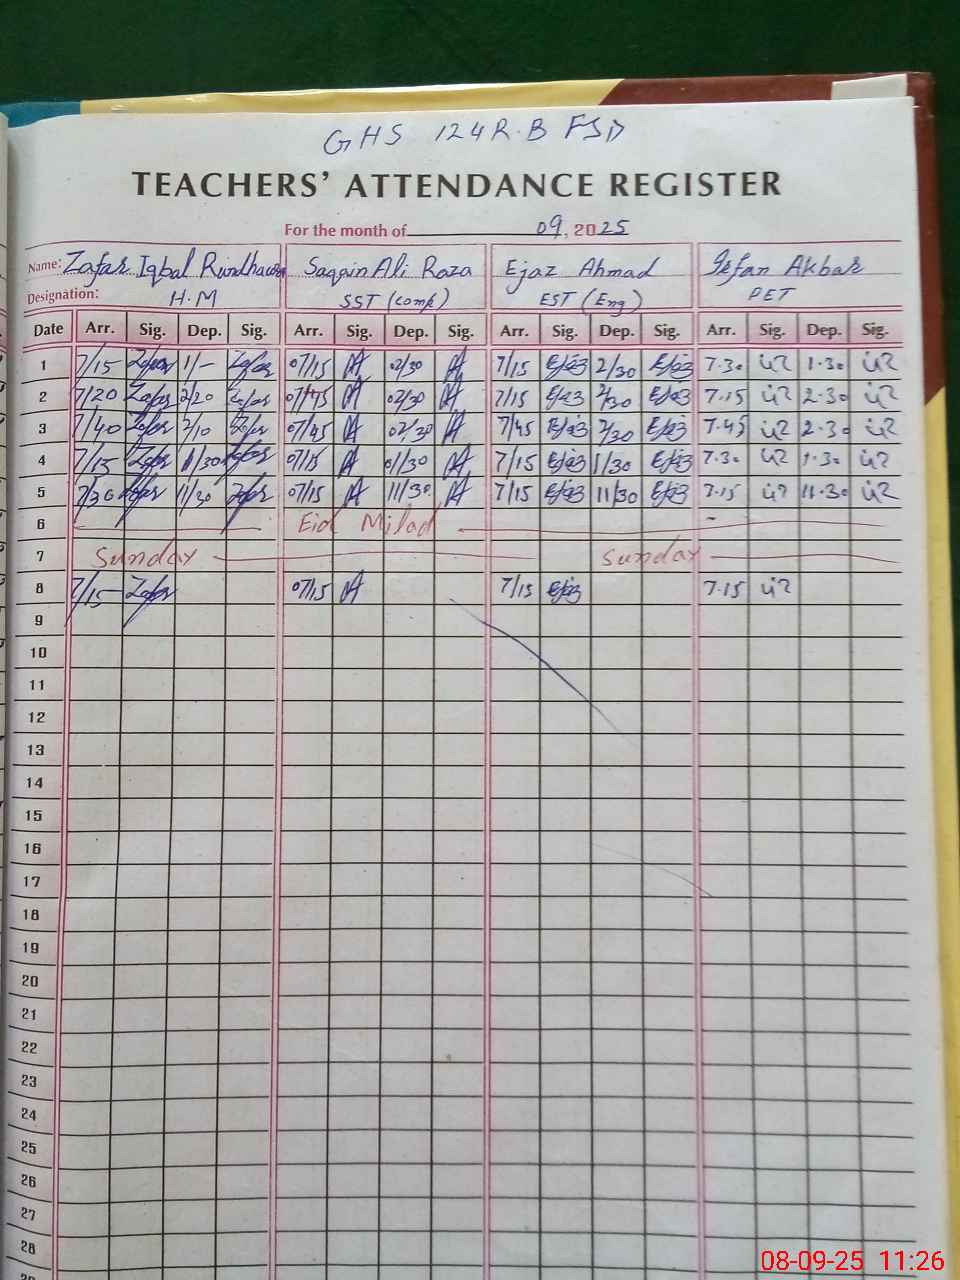 GHS 124 R.B FSD
TEACHERS' ATTENDANCE REGISTER
For the month of 09, 2025
Name: Zafar Iqbal Saqain Ali Raza Ejaz Ahmad Irfan Akbar
Designation: H.M SST (comp) EST (Eng) PET
Date Arr. Sig. Dep. Sig. Arr. Sig. Dep. Sig. Arr. Sig. Dep. Sig. Arr. Sig. Dep. Sig.
1 7/15 Zafar 1/- Zafar 07/15 02/30 7/15 Ejaz 2/30 Ejaz 7.30 1.30
2 7/20 Zafar 2/20 Zafar 07/45 02/30 7/15 Ejaz 2/30 Ejaz 7.15 2.30
3 7/40 Zafar 2/10 Zafar 07/45 02/30 7/45 Ejaz 2/30 Ejaz 7.45 2.30
4 7/15 Zafar 11/30 Zafar 07/15 01/30 7/15 Ejaz 1/30 Ejaz 7.30 1.30
5 7/30 Zafar 11/30 Zafar 07/15 11/30 7/15 Ejaz 11/30 Ejaz 7.15 11.30
6 Eid Milad
7 Sunday Sunday
8 7/15 Zafar 07/15 7/15 Ejaz 7.15
9
10
11
12
13
14
15
16
17
18
19
20
21
22
23
24
25
26
27
28
08-09-25 11:26